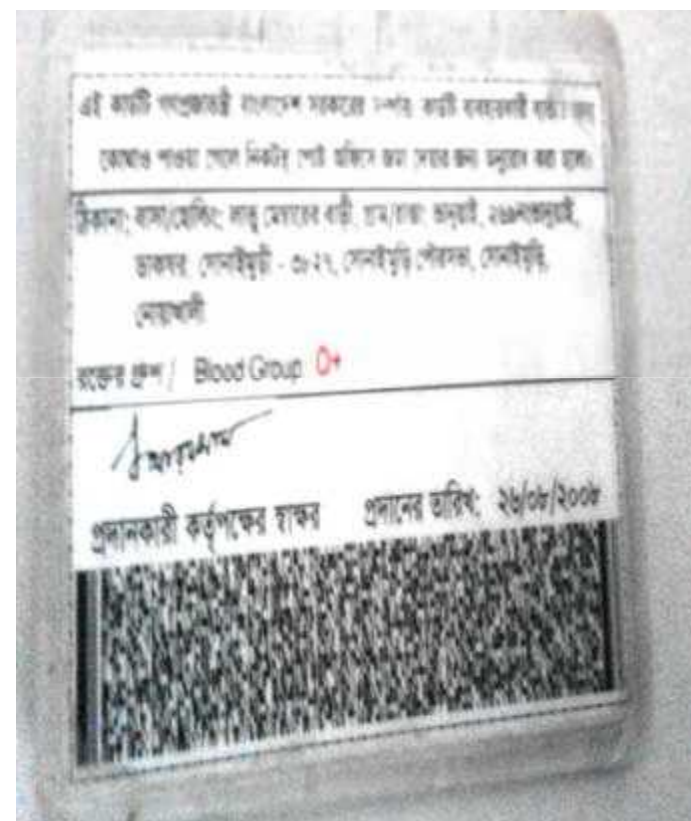 এই কার্ডটি গণপ্রজাতন্ত্রী বাংলাদেশ সরকারের সম্পত্তি কার্ডটি ব্যবহারকারী ব্যতীত অন্য
কোথাও পাওয়া গেলে নিকটস্থ পোস্ট অফিসে জমা দেবার জন্য অনুরোধ করা হলো।
ঠিকানা: বাসা/হোল্ডিং: মেম্বারের বাড়ী, গ্রাম/রাস্তা: ভানুয়াই,
ডাকঘর: সোনাইমুড়ী - ৩৮২৭, সোনাইমুড়ি পৌরসভা, সোনাইমুড়ি,
নোয়াখালী
রক্তের গ্রুপ / Blood Group O+
প্রদানকারী কর্তৃপক্ষের স্বাক্ষর প্রদানের তারিখ: ২৬/০৮/২০০৮